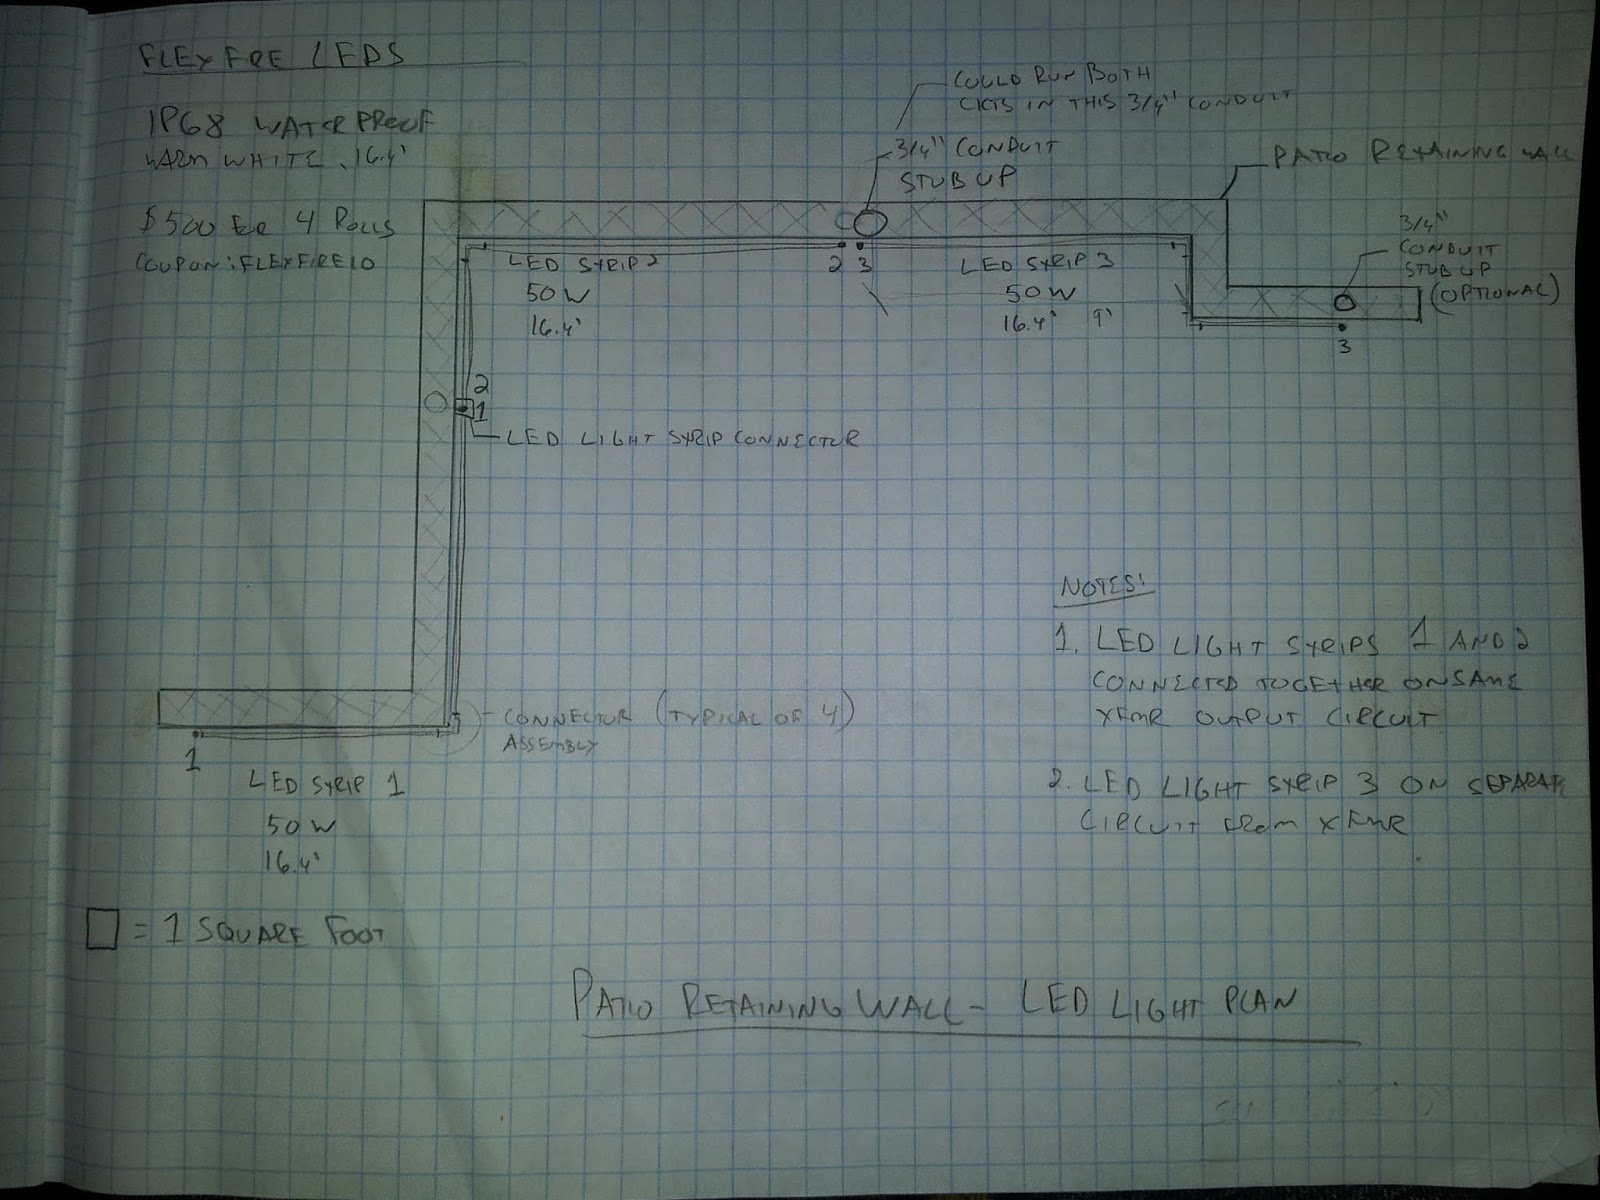 FLEXFIRE LEDS
IP68 WATERPROOF
WARM WHITE, 16.4'
$500 FOR 4 ROLLS
COUPON: FLEXFIRE10
COULD RUN BOTH
CKTS IN THIS 3/4" CONDUIT
3/4" CONDUIT
STUB UP
PATIO RETAINING WALL
3/4"
CONDUIT
STUB UP
(OPTIONAL)
LED STRIP 2
50W
16.4'
2 3
LED STRIP 3
50W
16.4' 9'
3
2
1
LED LIGHT STRIP CONNECTOR
CONNECTOR (TYPICAL OF 4)
ASSEMBLY
1
LED STRIP 1
50W
16.4'
NOTES:
1. LED LIGHT STRIPS 1 AND 2
CONNECTED TOGETHER ON SAME
XFMR OUTPUT CIRCUIT
2. LED LIGHT STRIP 3 ON SEPARAT
CIRCUIT FROM XFMR
= 1 SQUARE FOOT
PATIO RETAINING WALL - LED LIGHT PLAN